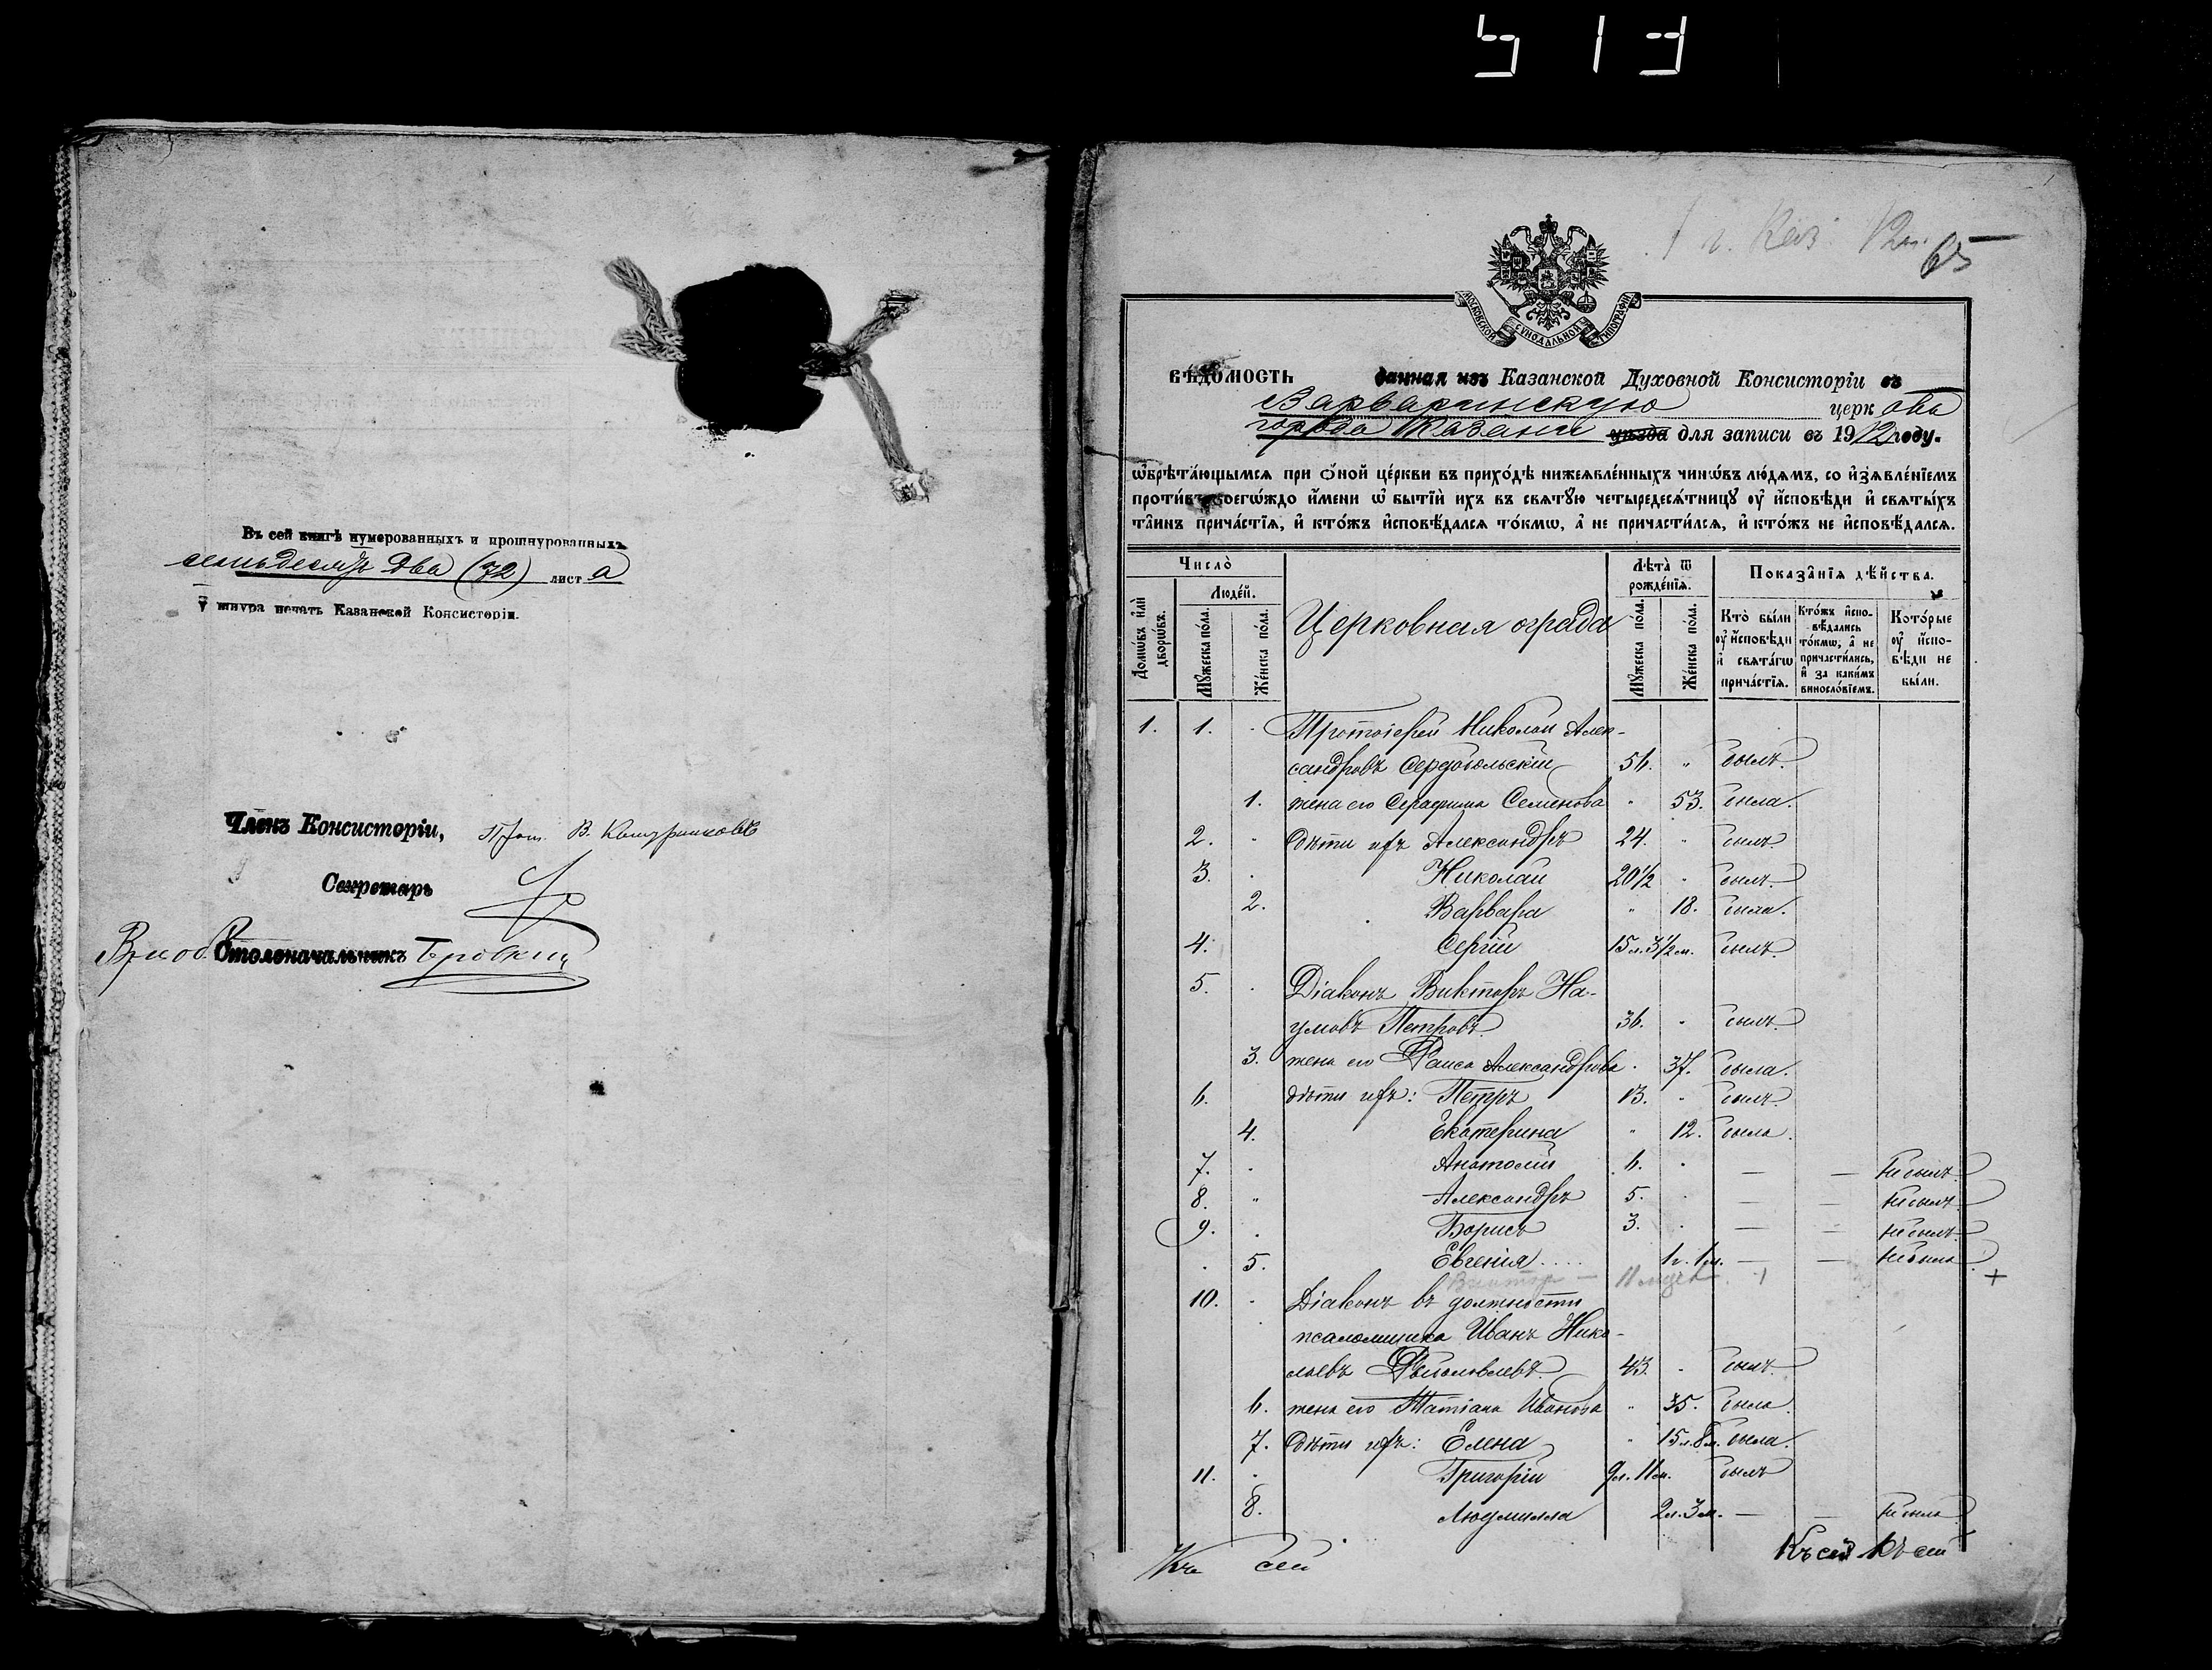 513
Въ сей книгѣ нумерованныхъ и прошнурованныхъ
семьдесятъ два (72) листа
У шнура печать Казанской Консисторіи.
Членъ Консисторіи, Прот. В.
Секретарь
Столоначальникъ
г. Каз. 12 г. 65
МОСКОВСКОЙ СѴНОДАЛЬНОЙ ТИПОГРАФІИ
ВѢДОМОСТЬ данная изъ Казанской Духовной Консисторіи въ
Варваринскую церковь
города Казани уѣзда для записи въ 1912 году.
ѡ҆брѣта́ющымсѧ при ѻ҆́ной це́ркви въ прихо́дѣ нижеꙗвле́нныхъ чинѡ́въ лю́дѧмъ, со и҆зѧвле́нїемъ
проти́въ коегѡ́ждо и҆́мени ѡ҆ бытїѝ ихъ въ свѧтꙋ́ю четыредесѧ́тницꙋ оу҆ и҆́сповѣди и҆ свѧты́хъ
та̑инъ прича́стїѧ, и҆ кто́жъ и҆сповѣ́дался то́кмѡ, а҆ не причасти́лся, и҆ кто́жъ не и҆сповѣ́дался.
Число̀ Лѣта̀ ѿ рожде́нїѧ. Показа̑нїѧ дѣ́йства.
Домѡ́въ и҆лѝ дворѡ́въ. Люде́й. Мꙋ́жеска по́ла. Же́нска по́ла. Церковная ограда Мꙋ́жеска по́ла. Же́нска по́ла. Кто̀ бы́ли оу҆ и҆́сповѣди и҆ свѧта́гѡ прича́стїѧ. Кто́жъ и҆спо-вѣ́дались то́кмѡ, а҆ не причасти́лись, и҆ за каки́мъ виносло́вїемъ. Кото́рые оу҆ и҆спо-вѣди не бы́ли.
1. 1. Протоіерей Николай Алек-
сандровъ Сердобольскій 56. " былъ.
1. жена его Серафима Семенова " 53. была.
2. " дѣти ихъ Александръ 24. " былъ.
3. Николай 20 1/2 " былъ.
2. Варвара " 18. была.
4. Сергій 15 л. 3 1/2 м. былъ.
5. Діаконъ Викторъ На-
умовъ Петровъ 36. " былъ.
3. жена его Раиса Александрова 37. была.
6. дѣти ихъ: Петръ 13. " былъ.
4. Екатерина " 12. была.
7. Анатолій 6. " — — не былъ.
8. " Александръ 5. — — не былъ.
9. Борисъ 3. — — не былъ.
5. Евгенія.... 1 г. 1 м. — — не была. +
Викторъ — 11 мѣс.
10. Діаконъ въ должности
псаломщика Иванъ Нико-
лаевъ 43. былъ.
6. жена его Татіана Иванова " 35. была.
7. дѣти ихъ: Елена " 15 л. 8 м. была.
11. Григорій 9 л. 11 м. былъ
8. Людмилла 2 л. 3 м. — — не была
Къ сей Къ сей Къ сей